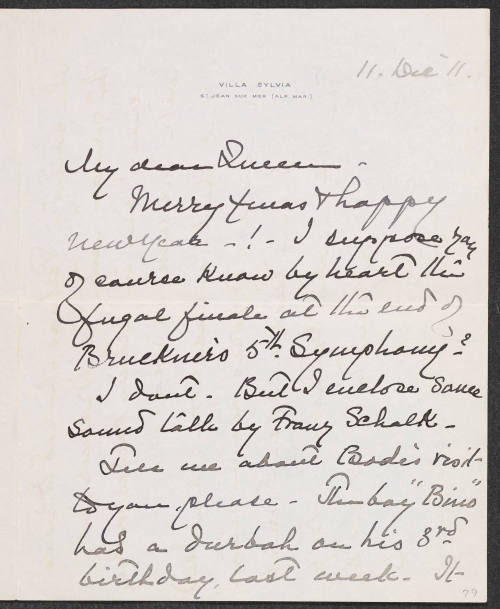 VILLA SYLVIA
ST JEAN SUR MER (ALP. MAR.)
11. Dec 11.
My dear Queen -
Merry Xmas & happy
New Year - ! - I suppose you
of course know by heart the
fugal finale at the end of
Bruckner's 5th Symphony?
I dont. But I enclose some
sound talk by Franz Schalk -
Tell me about Bode's visit
to you, please - The boy "Bino"
has a durbah on his 3rd
birthday, last week. It
79